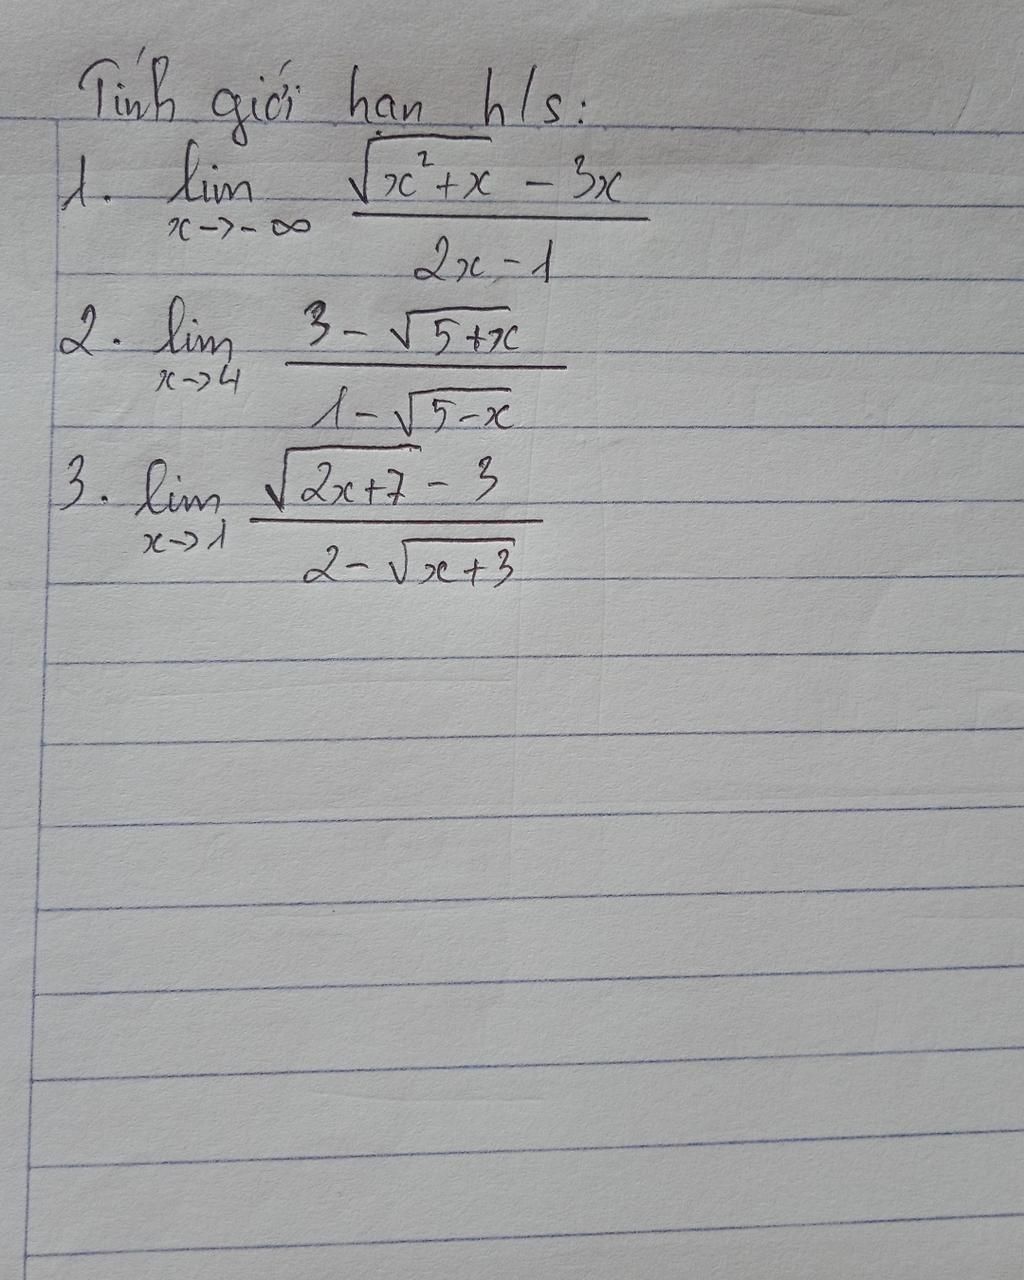 Tính giới hạn h/s:
1. lim x→-∞ (√(x²+x) - 3x)/(2x - 1)
2. lim x→4 (3 - √(5+x))/(1 - √(5-x))
3. lim x→1 (√(2x+7) - 3)/(2 - √(x+3))